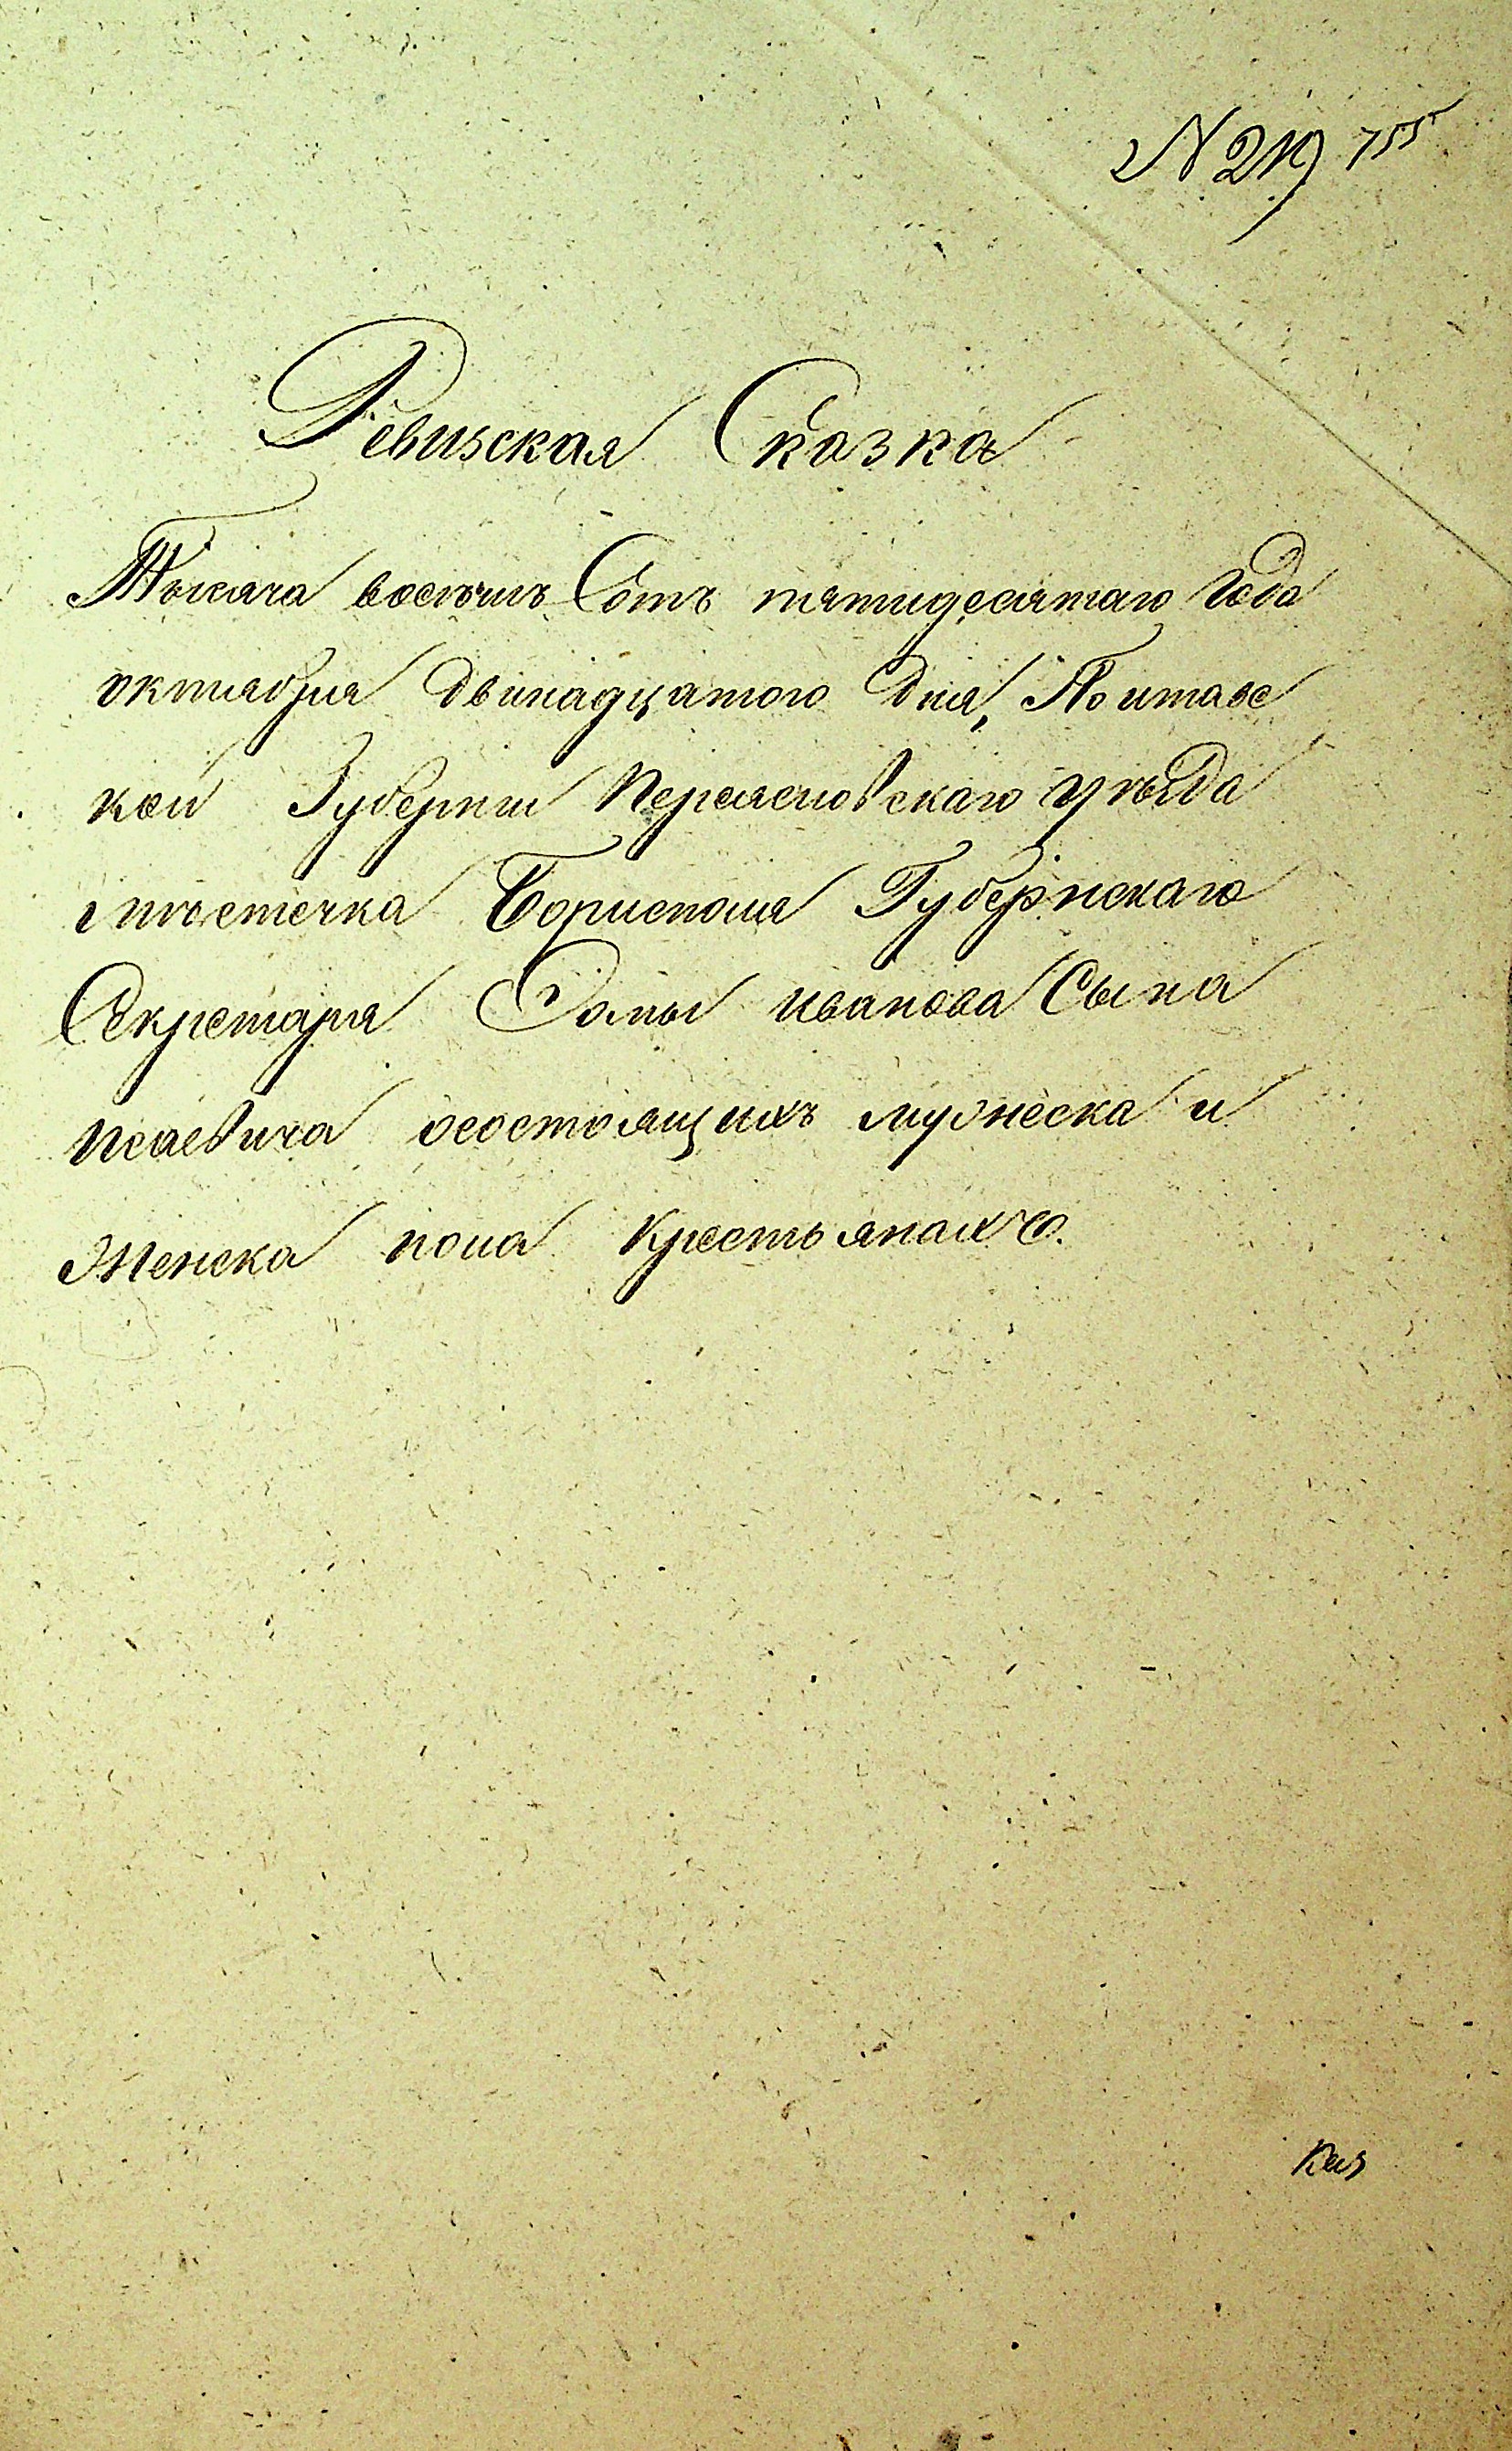 N 219 755
Ревизская Сказка
Тысяча восемь Сотъ пятидесятаго года
октиября двинадцатого дня, Полтавс
кои Губернии Переясловскаго уезда
мѣстечка Борисполя Губернскаго
Секретаря Фомы иванова Сына
Исаевича осостоящихъ мужеска и
женска пола Крестьянахъ.